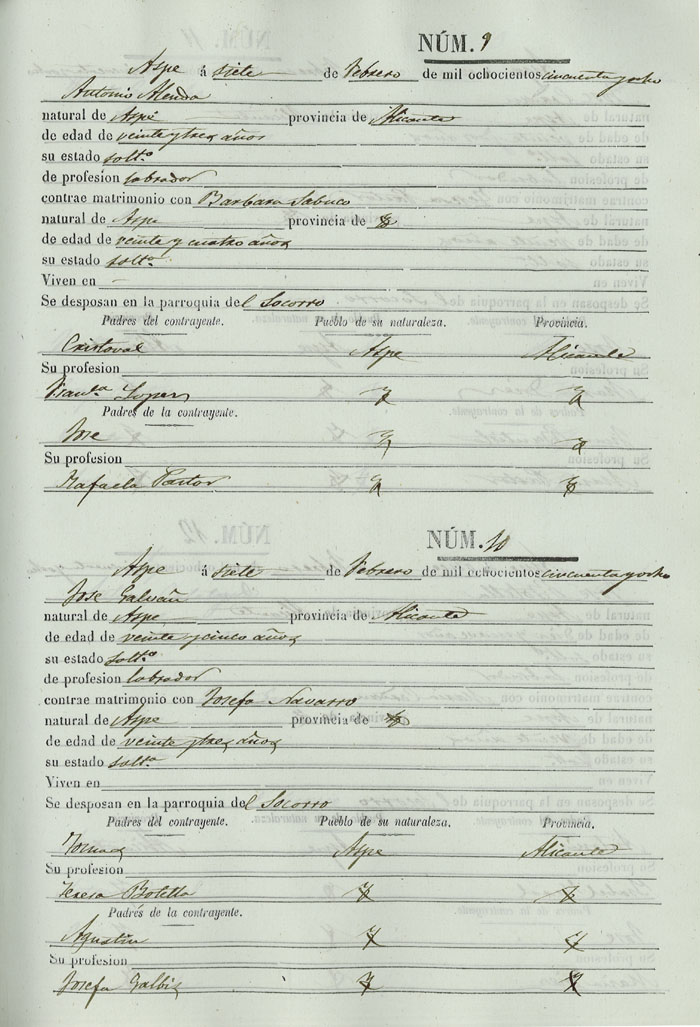 NÚM. 9
Aspe á siete de Febrero de mil ochocientos cincuenta y ocho
Antonio Alenda
natural de Aspe provincia de Alicante
de edad de veinte y tres años
su estado solt.º
de profesion labrador
contrae matrimonio con Barbara Sabuco
natural de Aspe provincia de
de edad de veinte y cuatro años
su estado solt.ª
Viven en
Se desposan en la parroquia del Socorro
Padres del contrayente. Pueblo de su naturaleza. Provincia.
Cristoval Aspe Alicante
Su profesion
Lopez
Padres de la contrayente.
Jose
Su profesion
Rafaela Pastor
NÚM. 10
Aspe á siete de Febrero de mil ochocientos cincuenta y ocho
Jose Galvañ
natural de Aspe provincia de Alicante
de edad de veinte y cinco años
su estado solt.º
de profesion labrador
contrae matrimonio con Josefa Navarro
natural de Aspe provincia de
de edad de veinte y tres años
su estado solt.ª
Viven en
Se desposan en la parroquia del Socorro
Padres del contrayente. Pueblo de su naturaleza. Provincia.
Tomas Aspe Alicante
Su profesion
Teresa Botella
Padres de la contrayente.
Agustin
Su profesion
Josefa Galbis